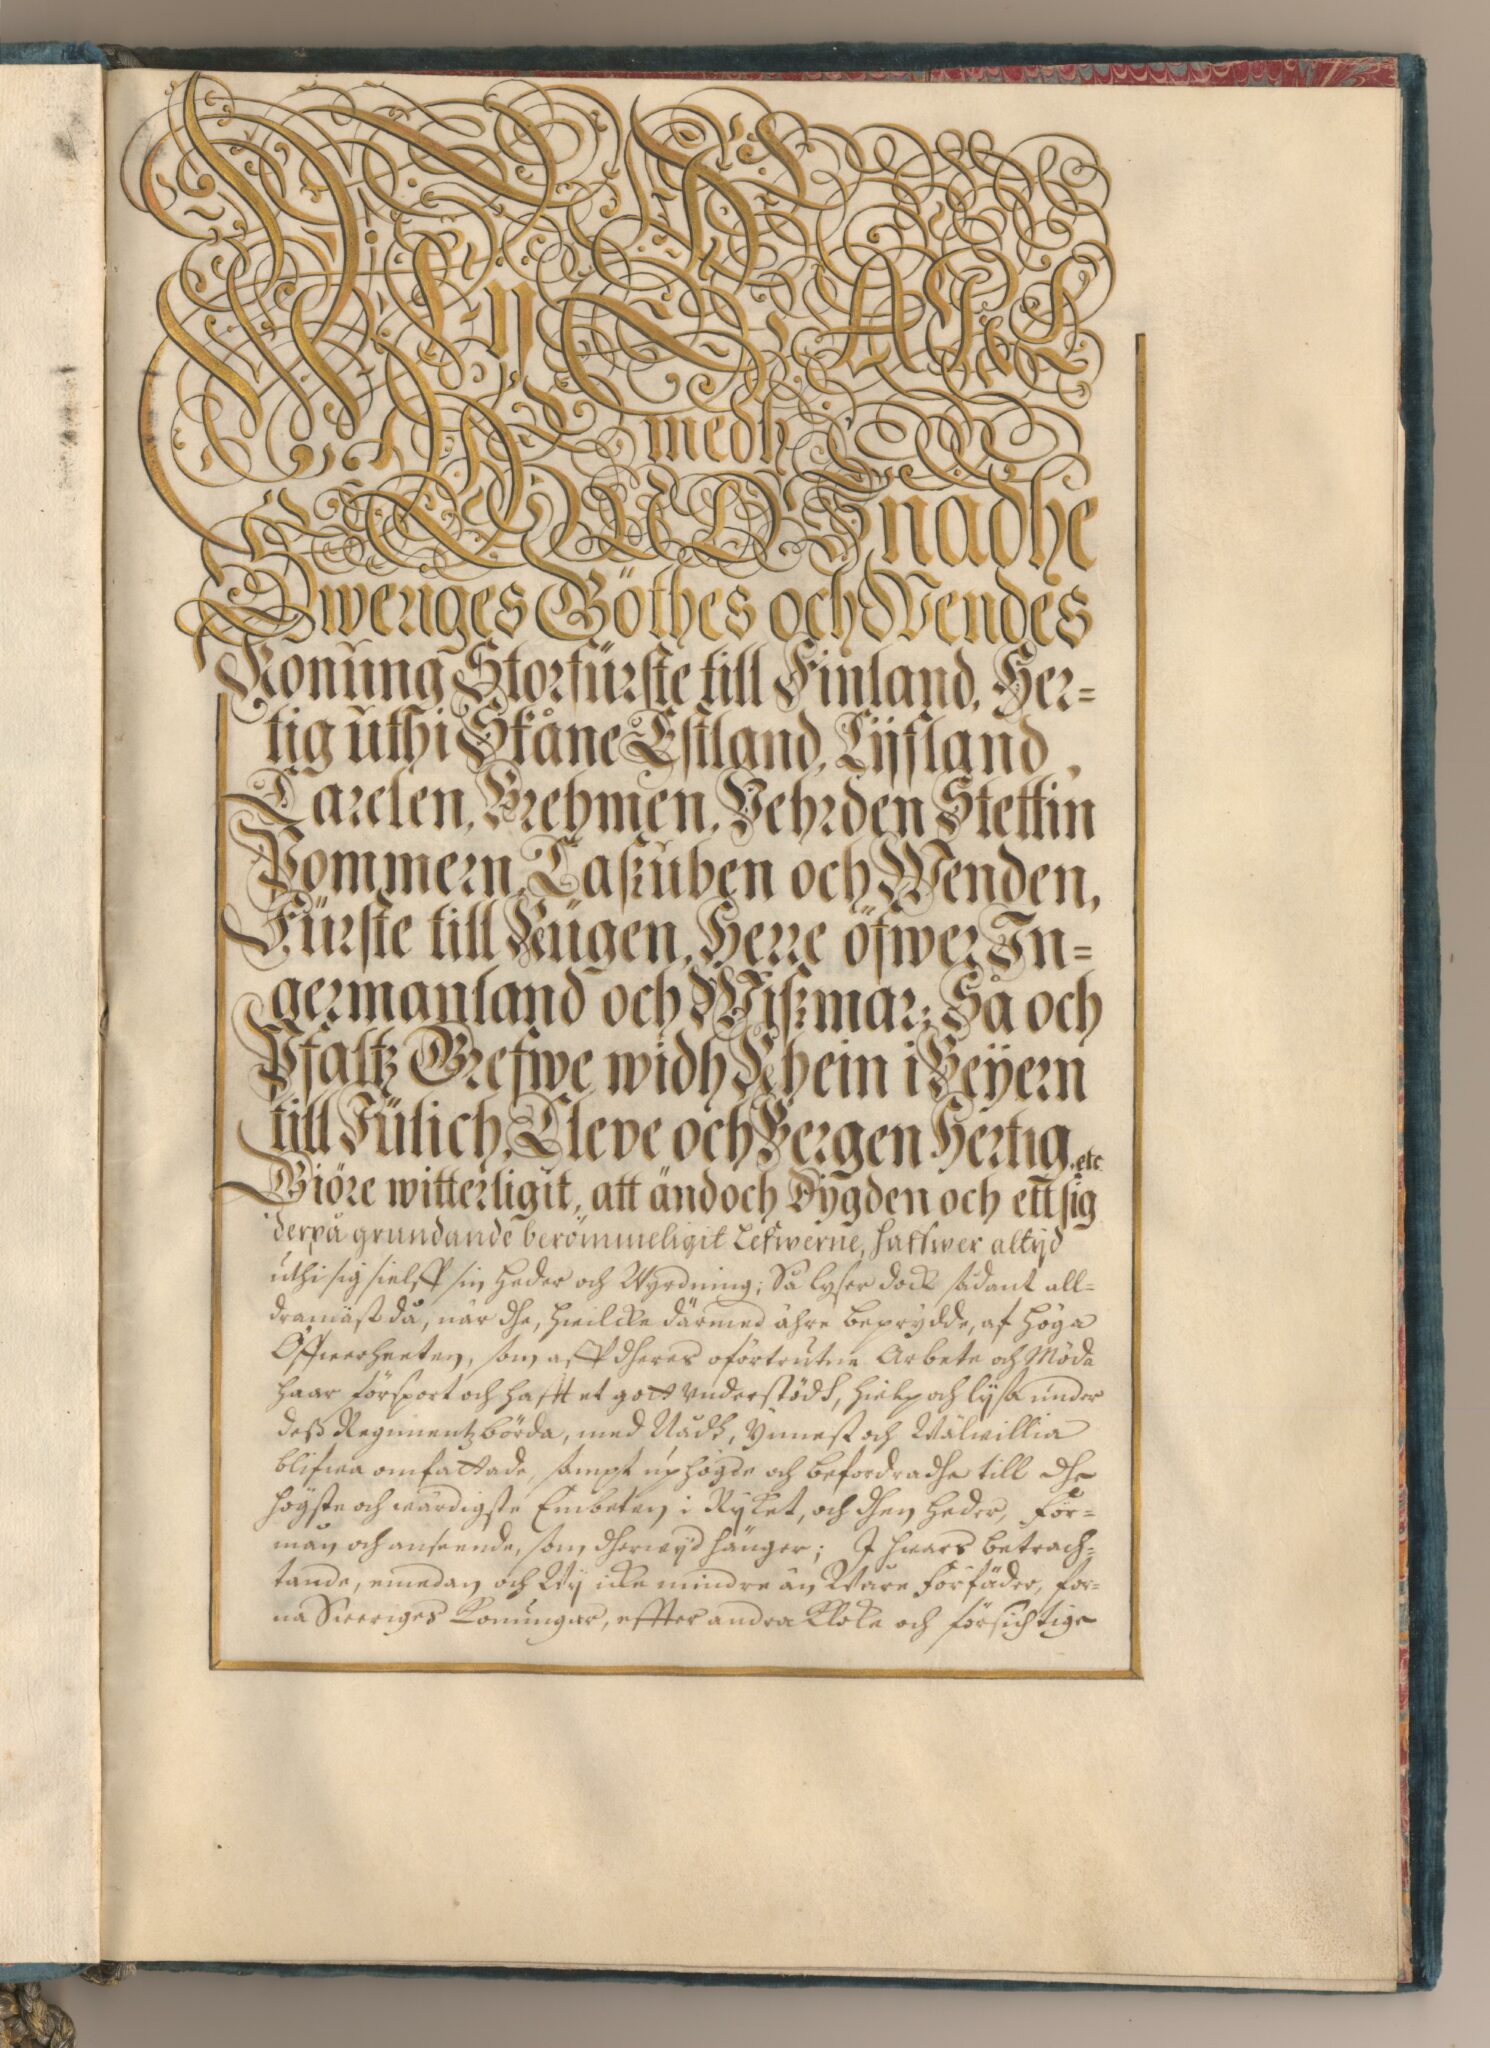 Wy CARL
medh
GUDZ Gnadhe
Sweriges Göthes och Wendes
Konung Storfürste till Finland, Her=
tig uthi Skåne Estland, Lijfland,
Carelen, Brehmen, Vehrden Stettin
Pommern, Caßuben och Wenden,
Fürste till Rügen, Herre öfwer In=
germanland och Wißmar; Så och
Pfaltz Grefwe widh Rhein i Beÿern
till Jülich, Cleve och Bergen Hertig, etc
Giöre witterligit, att ändoch Dygden och ett sig
derpå grundande berömmeligit Lefwerne, haffwer altijd
uthi sig sielff sin heder och Wyrdning; Så lyser dock sådant all=
dramäst då, när dhe, hwilcka därmed ähre beprydde, af höga
Öffwerheeten, som aff dheras oförtrutne Arbete och Möda
haar försport och hafft et gott understödh, hielp och lijsa under
deß Regimentz börda, med Nådh, Ynnest och Wälwillia
blifwa omfattade, sampt uphögde och befordradhe till dhe
högste och wärdigste Embeten i Rijket, och dhen heder, För=
mån och anseende, som dherwijd hänger; I hwars betrach=
tande, emedan och Wij icke mindre än Wåre Förfäder, for=
na Sweriges Konungar, effter andra Kloka och försichtige